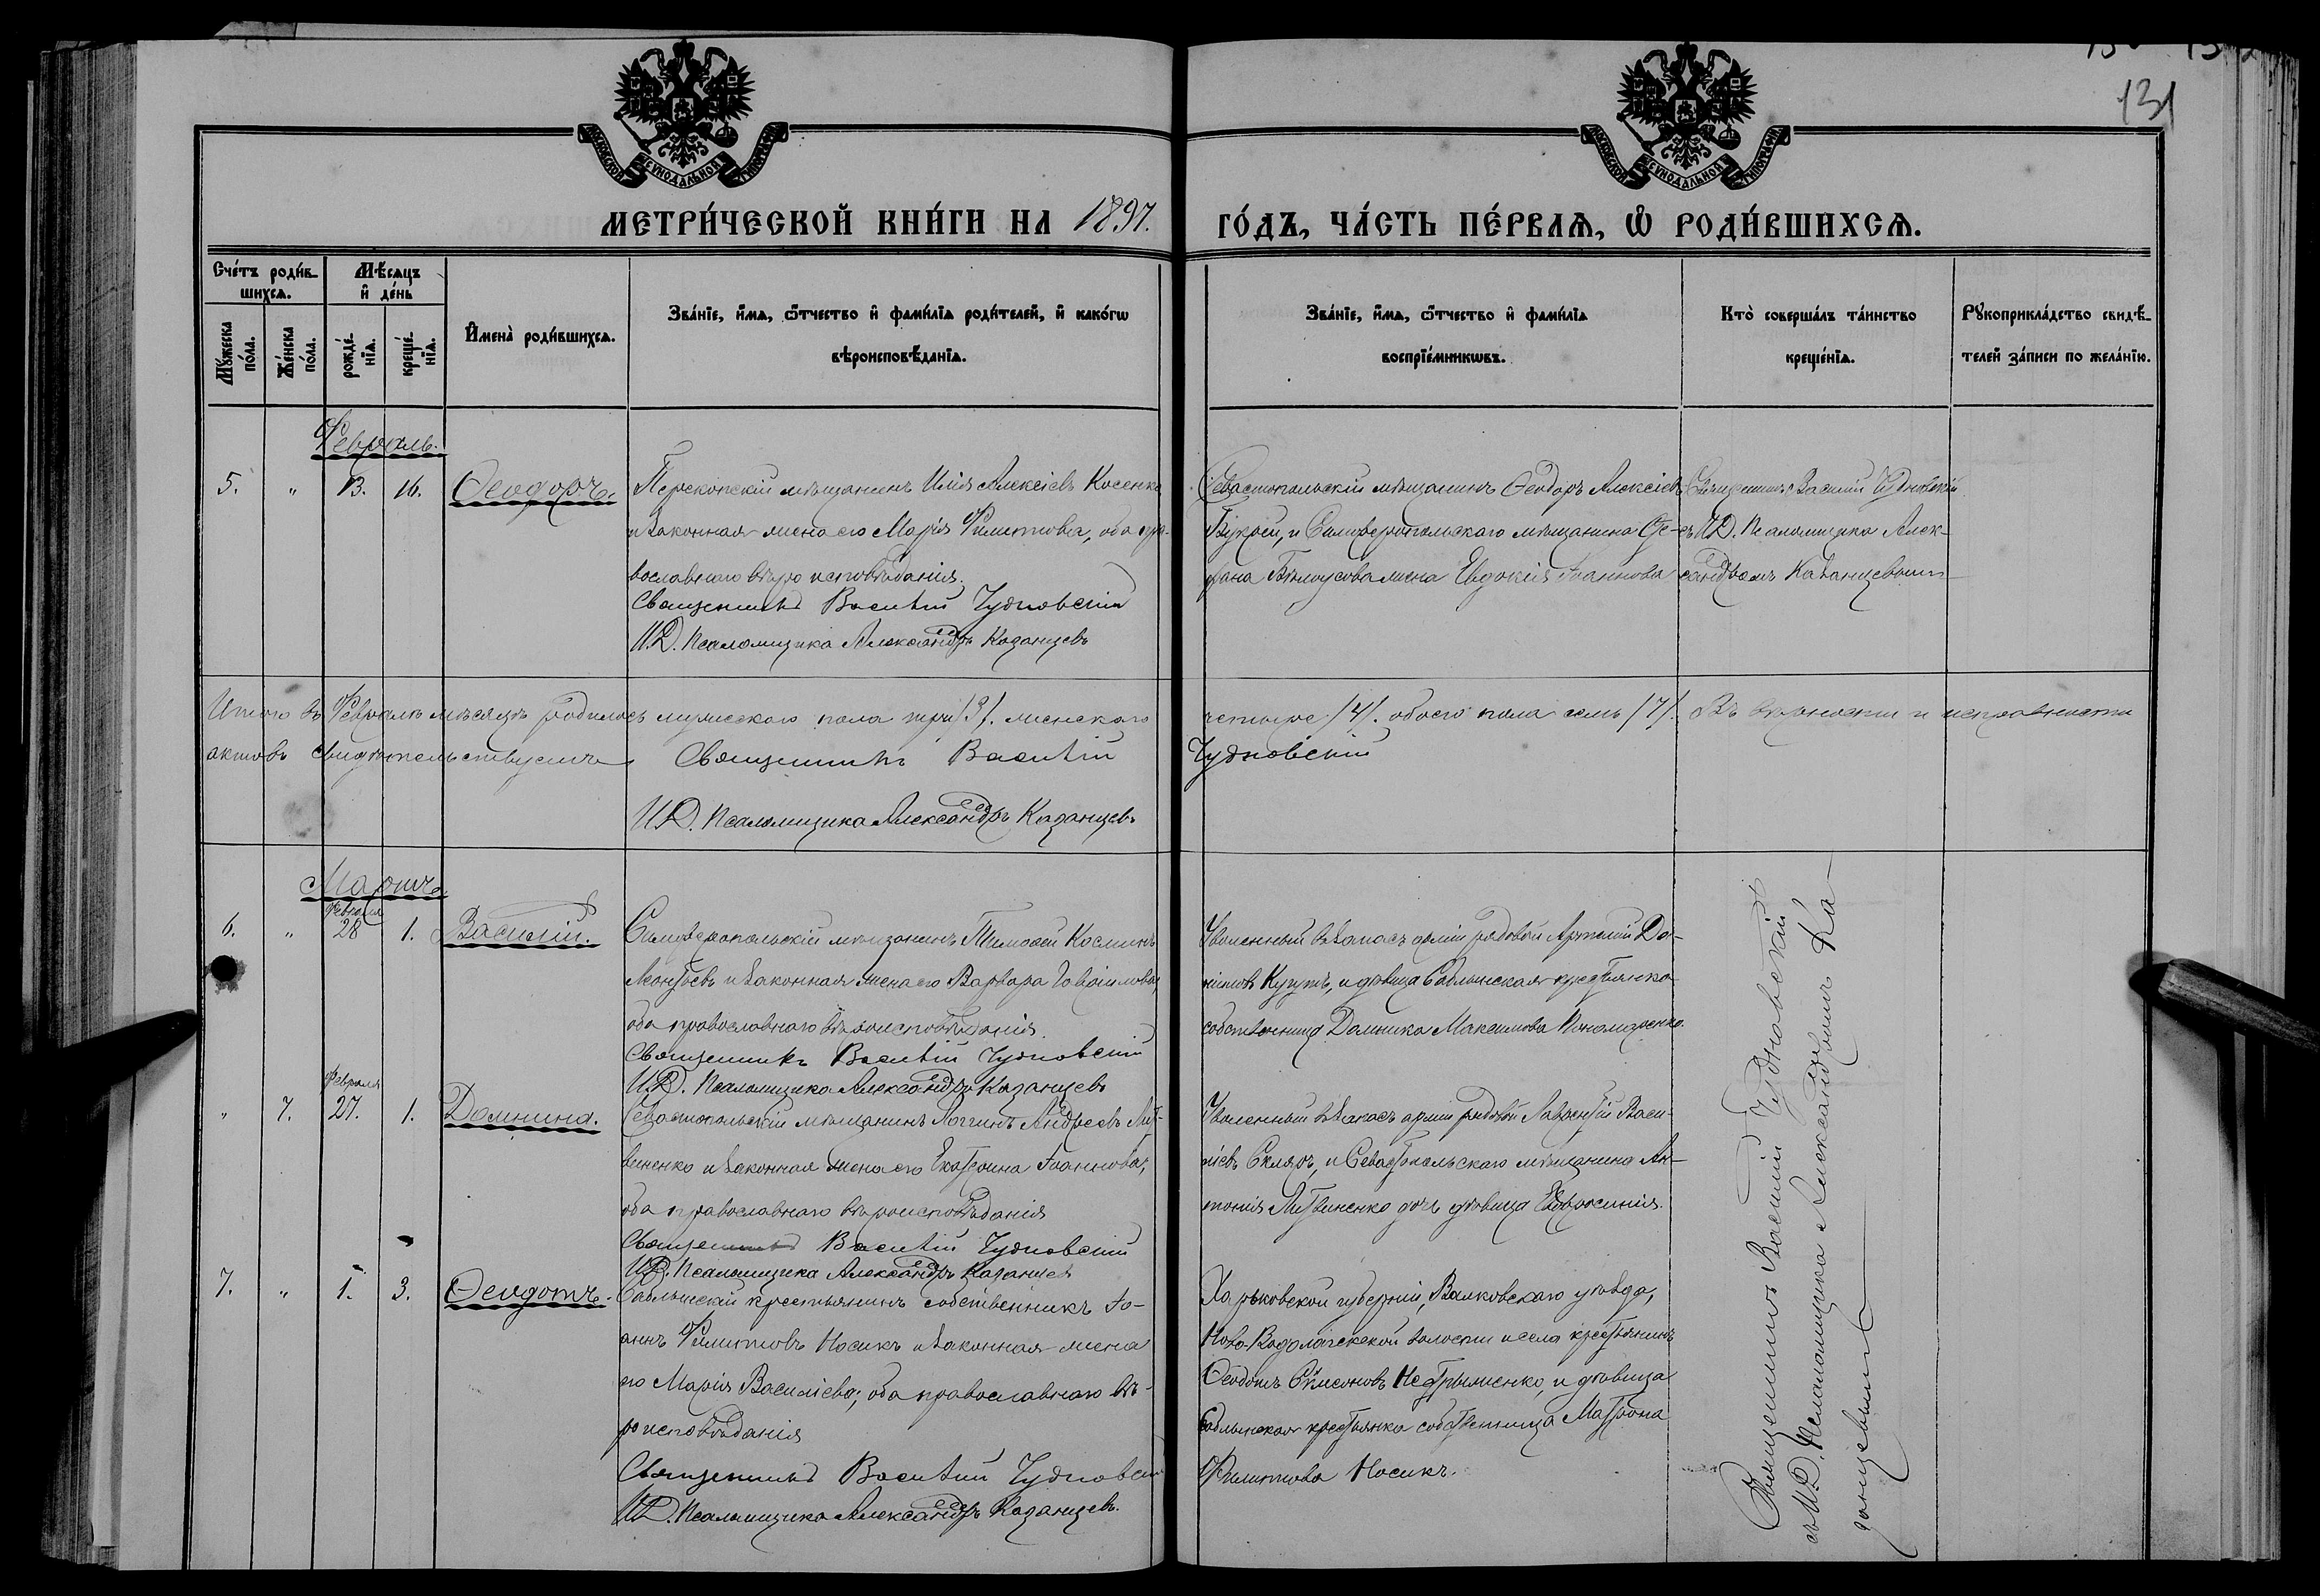 131
МОСКОВСКОЙ СѴНОДАЛЬНОЙ ТИПОГРАФІИ
МОСКОВСКОЙ СѴНОДАЛЬНОЙ ТИПОГРАФІИ
МЕТРИ́ЧЕСКОЙ КНИ́ГИ НА 1897. ГО́ДЪ, ЧА́СТЬ ПЕ́РВАѦ, Ѡ҆ РОДИ́ВШИХСѦ.
Сче́тъ роди́в-
шихсѧ.
Мѣ́сѧцъ
и҆ де́нь
Мꙋ́жеска
по́ла.
Же́нска
по́ла.
рожде́-
нїѧ.
креще́-
нїѧ.
И҆мена̀ роди́вшихсѧ.
Зва́нїе, и҆́мѧ, ѻ҆́тчество и҆ фами́лїѧ роди́телей, и҆ како́гѡ
вѣроисповѣ́данїѧ.
Зва́нїе, и҆́мѧ, ѻ҆́тчество и҆ фами́лїѧ
воспрїе́мникѡвъ.
Кто̀ соверша́лъ та́инство
креще́нїѧ.
Рꙋкоприкла́дство свидѣ́-
телей за́писи по жела́нїю.
Февраль.
5. " 13. 16. Ѳеодоръ.
Перекопскій мѣщанинъ Илія Алексіевъ Косенко
и законная жена его Марія Филиппова, оба пра-
вославнаго вѣроисповѣданія.
Священникъ Василій Чудновскій
И.Д. Псаломщика Александръ Казанцевъ
Севастопольскій мѣщанинъ Ѳеодоръ Алексіевъ
и Симферопольскаго мѣщанина Сте-
фана Бѣлоусова жена Евдокія Іоаннова
Священникъ Василій Чудновскій
съ И.Д. Псаломщика Алек-
сандромъ Казанцевымъ
Итого въ Февралѣ мѣсяцѣ родилось мужескаго пола три /3/. женскаго четыре /4/. обоего пола семь /7/. Въ вѣрности и исправности
актовъ свидѣтельствуемъ Священникъ Василій Чудновскій
И.Д. Псаломщика Александръ Казанцевъ
Мартъ
Февраля
6. " 28 1. Василій.
Симферопольскій мѣщанинъ Тимоѳей Косминъ
и законная жена его Варвара Іоакимова,
оба православнаго вѣроисповѣданія
Священникъ Василій Чудновскій
И.Д. Псаломщика Александръ Казанцевъ
Уволенный въ запасъ арміи рядовой Артемій Да-
ниловъ и дѣвица Саблынская крестьянка
собственница Домника Максимова Пономаренко.
Февраля
" 7. 27. 1. Домнина.
Севастопольскій мѣщанинъ Логгинъ Андреевъ Лит-
виненко и законная жена его Екатерина Іоаннова,
оба православнаго вѣроисповѣданія
Священникъ Василій Чудновскій
И.Д. Псаломщика Александръ Казанцевъ
Уволенный въ запасъ арміи рядовой Лаврентій Васи-
ліевъ Скляръ, и Севастопольскаго мѣщанина Ан-
тонія Литвиненко дочь дѣвица Евфросинія.
7. " 1. 3. Ѳеодотъ.
Саблынскій крестьянинъ собственникъ Іо-
аннъ Филипповъ Носикъ и законная жена
его Марія Василіева; оба православнаго вѣ-
роисповѣданія
Священникъ Василій Чудновскій
И.Д. Псаломщика Александръ Казанцевъ.
Харьковской губерніи, Валковскаго уѣзда,
Ново-Водолажской волости и села крестьянинъ
Ѳеодотъ Сѵмеоновъ и дѣвица
Саблынская крестьянка собственница Матрона
Филиппова Носикъ.
Священникъ Василій Чудновскій
съ И.Д. Псаломщика Александромъ Ка-
занцевымъ